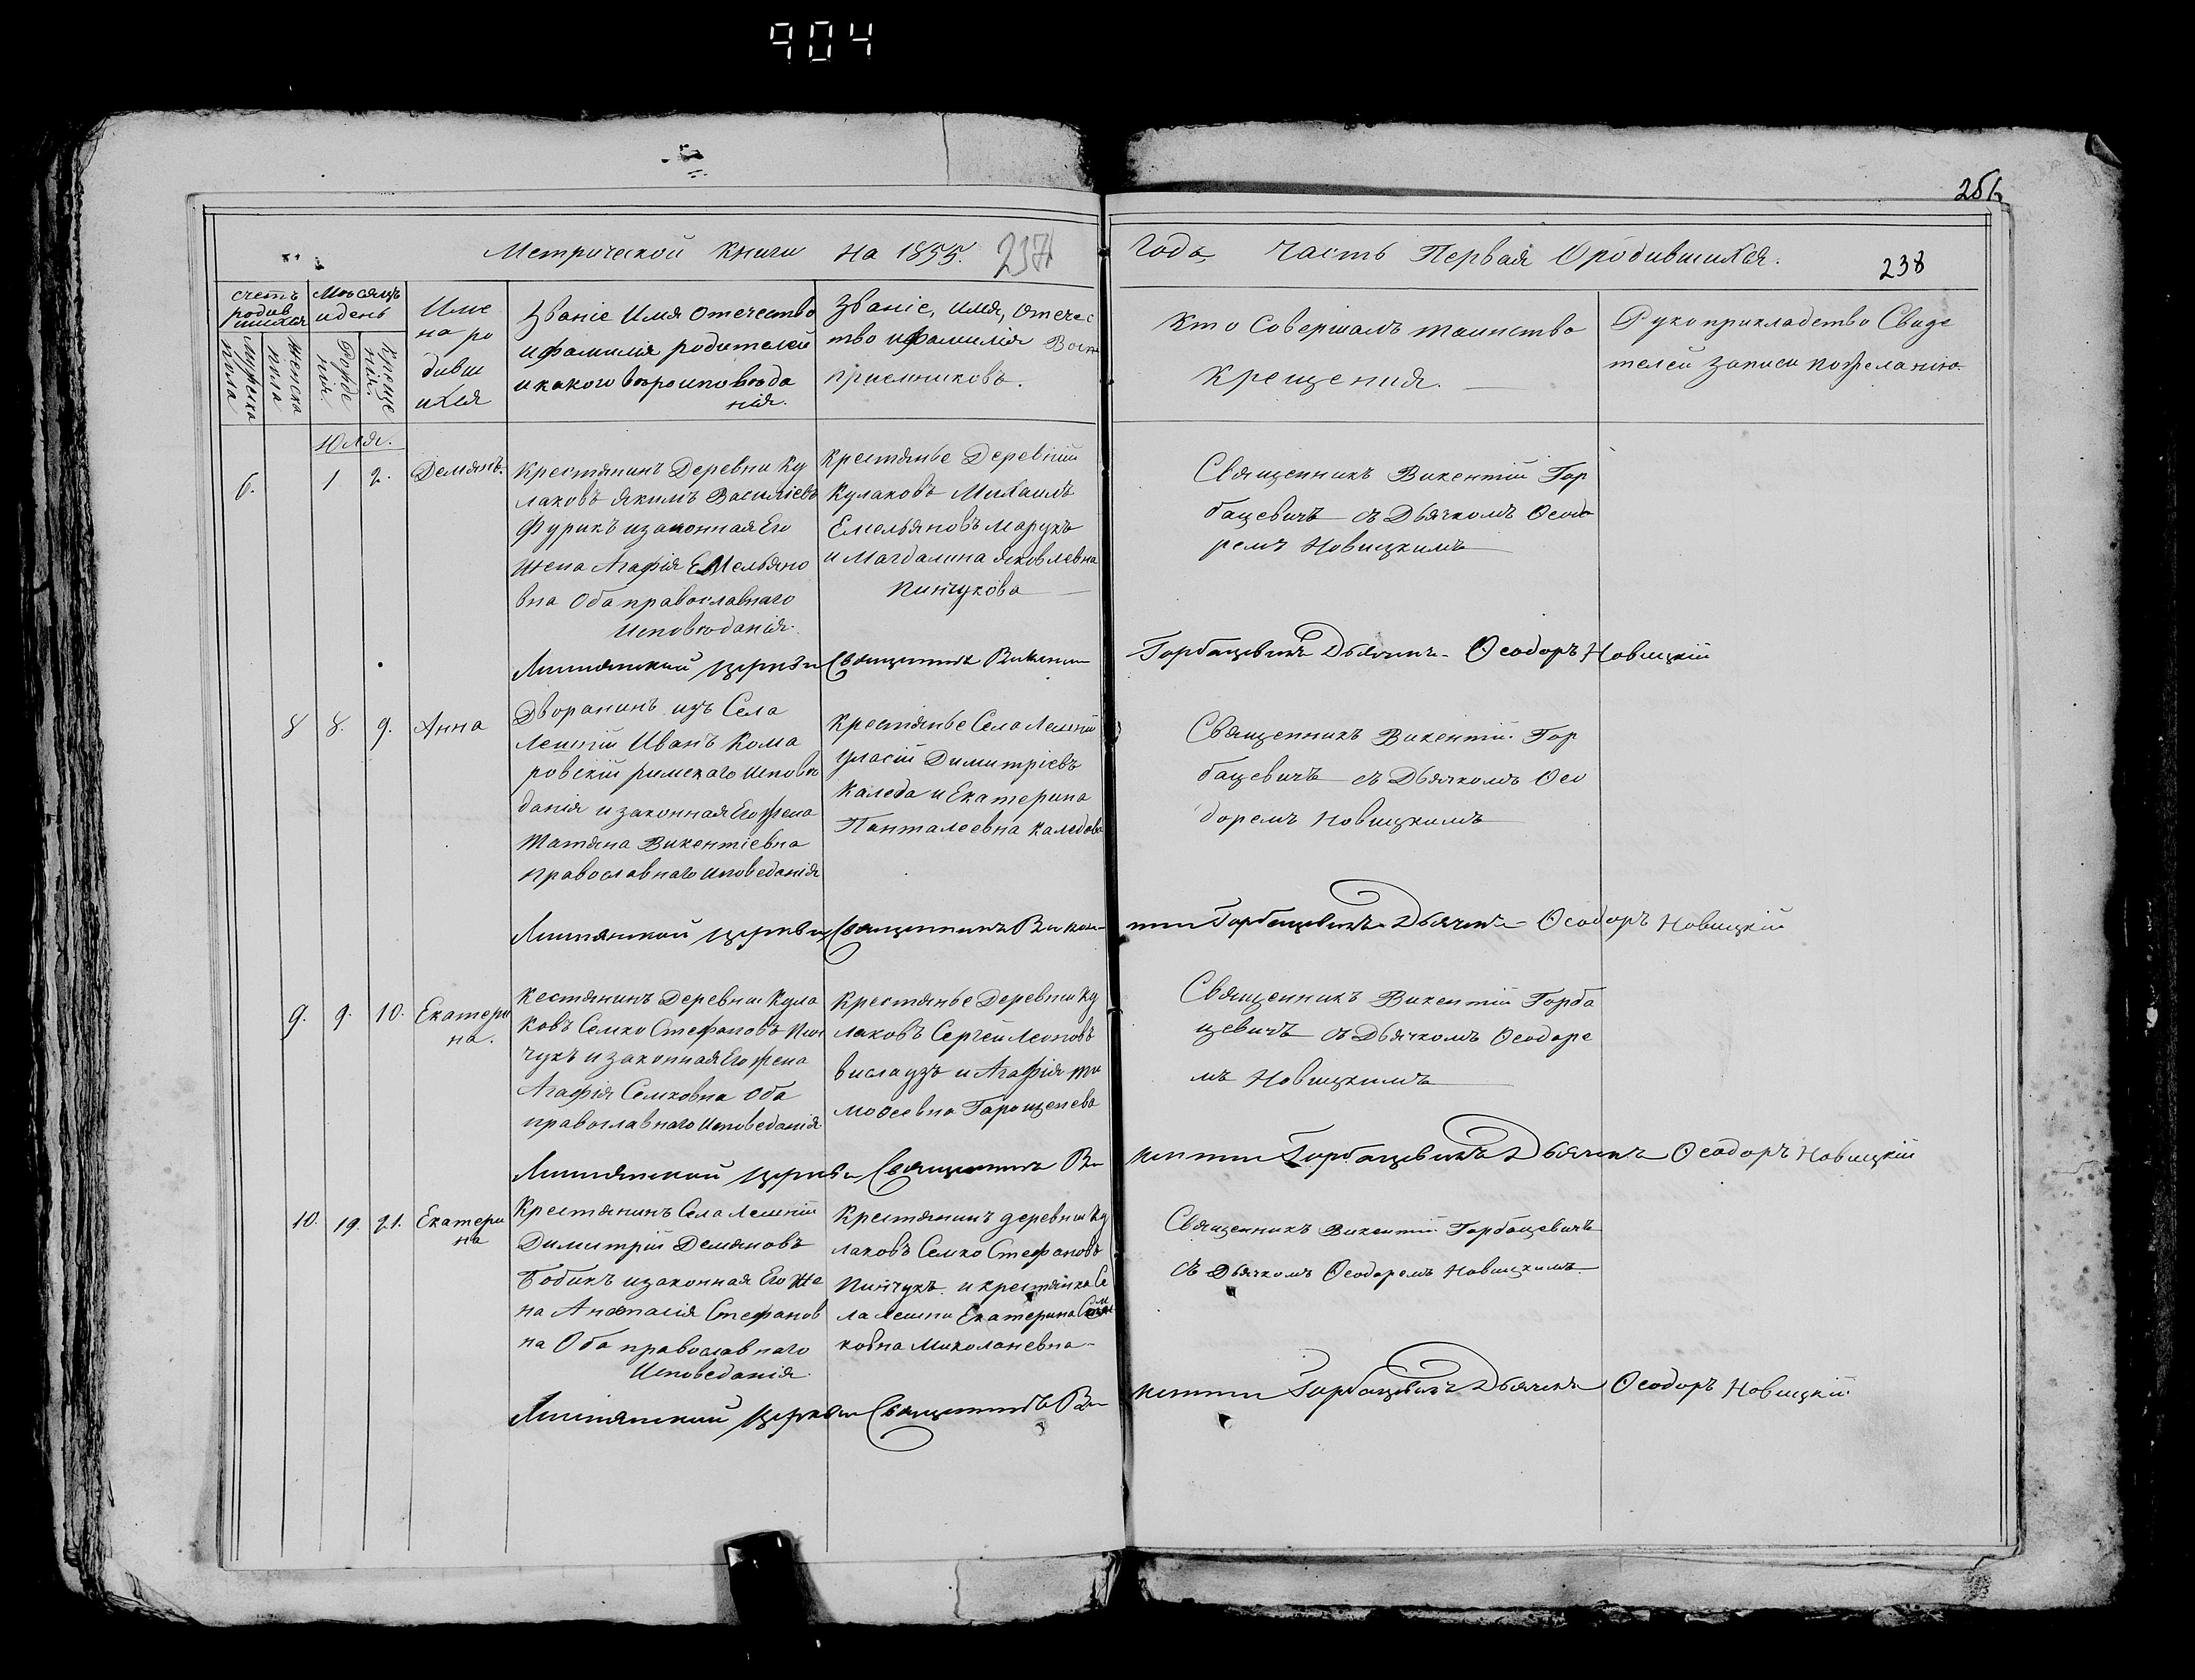 904
256
Метрической Книги на 1855.
Года, Часть Первая Ородившихся.
238
счетъ родив шихся
Мѣсяцъ и день
Мужска пола
Женска пола
Рожде нія
Креще нія.
Име
на ро
дивш
ихся
Званіе Имя Отечество
и фамилія родителей
и какого вѣроисповѣда
нія.
Званіе, имя, отечес
тво и фамилія Вос
пріемниковъ.
Кто Совершалъ таинство
Крещенія.
Рукоприкладство Свиде
телей записи по желанію.
Юля.
6.
1
2.
Демянъ.
Крестянинъ Деревни Ку
лаковъ Якимъ Василіевъ
Фурикъ и законная Его
жена Агафія Емельяно
вна Оба православнаго
Исповѣданія.
Крестянье Деревній
Кулаковъ Михаилъ
Емельяновъ Марукъ
и Магдалина Яковлевна
Пинчукова
Священникъ Викентій Гор
бацевичъ съ Дьячкомъ Ѳеодо
ремъ Новицкимъ
церкви Священникъ
Горбацевичъ Дьячекъ Ѳеодоръ Новицкій
8
8.
9.
Анна
Дворанинъ изъ Села
Лешній Иванъ Кома
ровскій римскаго Исповѣ
данія и законная Его жена
Татяна Викентіевна
православнаго исповеданія
Крестянье Села Лешній
Уласій Димитріевъ
Каледа и Екатерина
Панталеевна Каледова
Священникъ Викентій Гор
бацевичъ съ Дьячкомъ Ѳео
доремъ Новицкимъ
церкви Священникъ Викен
тій Горбацевичъ Дьячекъ Ѳеодоръ Новицкій
9.
9.
10.
Екатери
на.
Кестянинъ Деревни Кула
ковъ Семко Стефановъ Пин
чукъ и законная Его жена
Агафія Семковна Оба
православнаго исповеданія
Крестянье Деревни Ку
лаковъ Сергей Леоновъ
Вислаузъ и Агафія ти
моѳеевна
Священникъ Викентій Горба
цевичъ съ Дьячкомъ Ѳеодоре
мъ Новицкимъ
церкви Священникъ Ви
кентій Горбацевичъ Дьячекъ Ѳеодоръ Новицкій
10.
19.
21.
Екатери
на
Крестянинъ Села Лешній
Димитрій Демяновъ
Бобикъ и законная Его же
на Анастасія Стефанов
на Оба православнаго
Исповеданія.
Крестянинъ деревни Ку
лаковъ Семко Стефановъ
Пинчукъ и крестянка Се
ла Лешни Екатерина Сем
ковна Миколаневна
Священникъ Викентій Горбацевичъ
съ Дьячкомъ Ѳеодоремъ Новицкимъ
церкви Священникъ Ви
кентій Горбацевичъ Дьячекъ Ѳеодоръ Новицкій